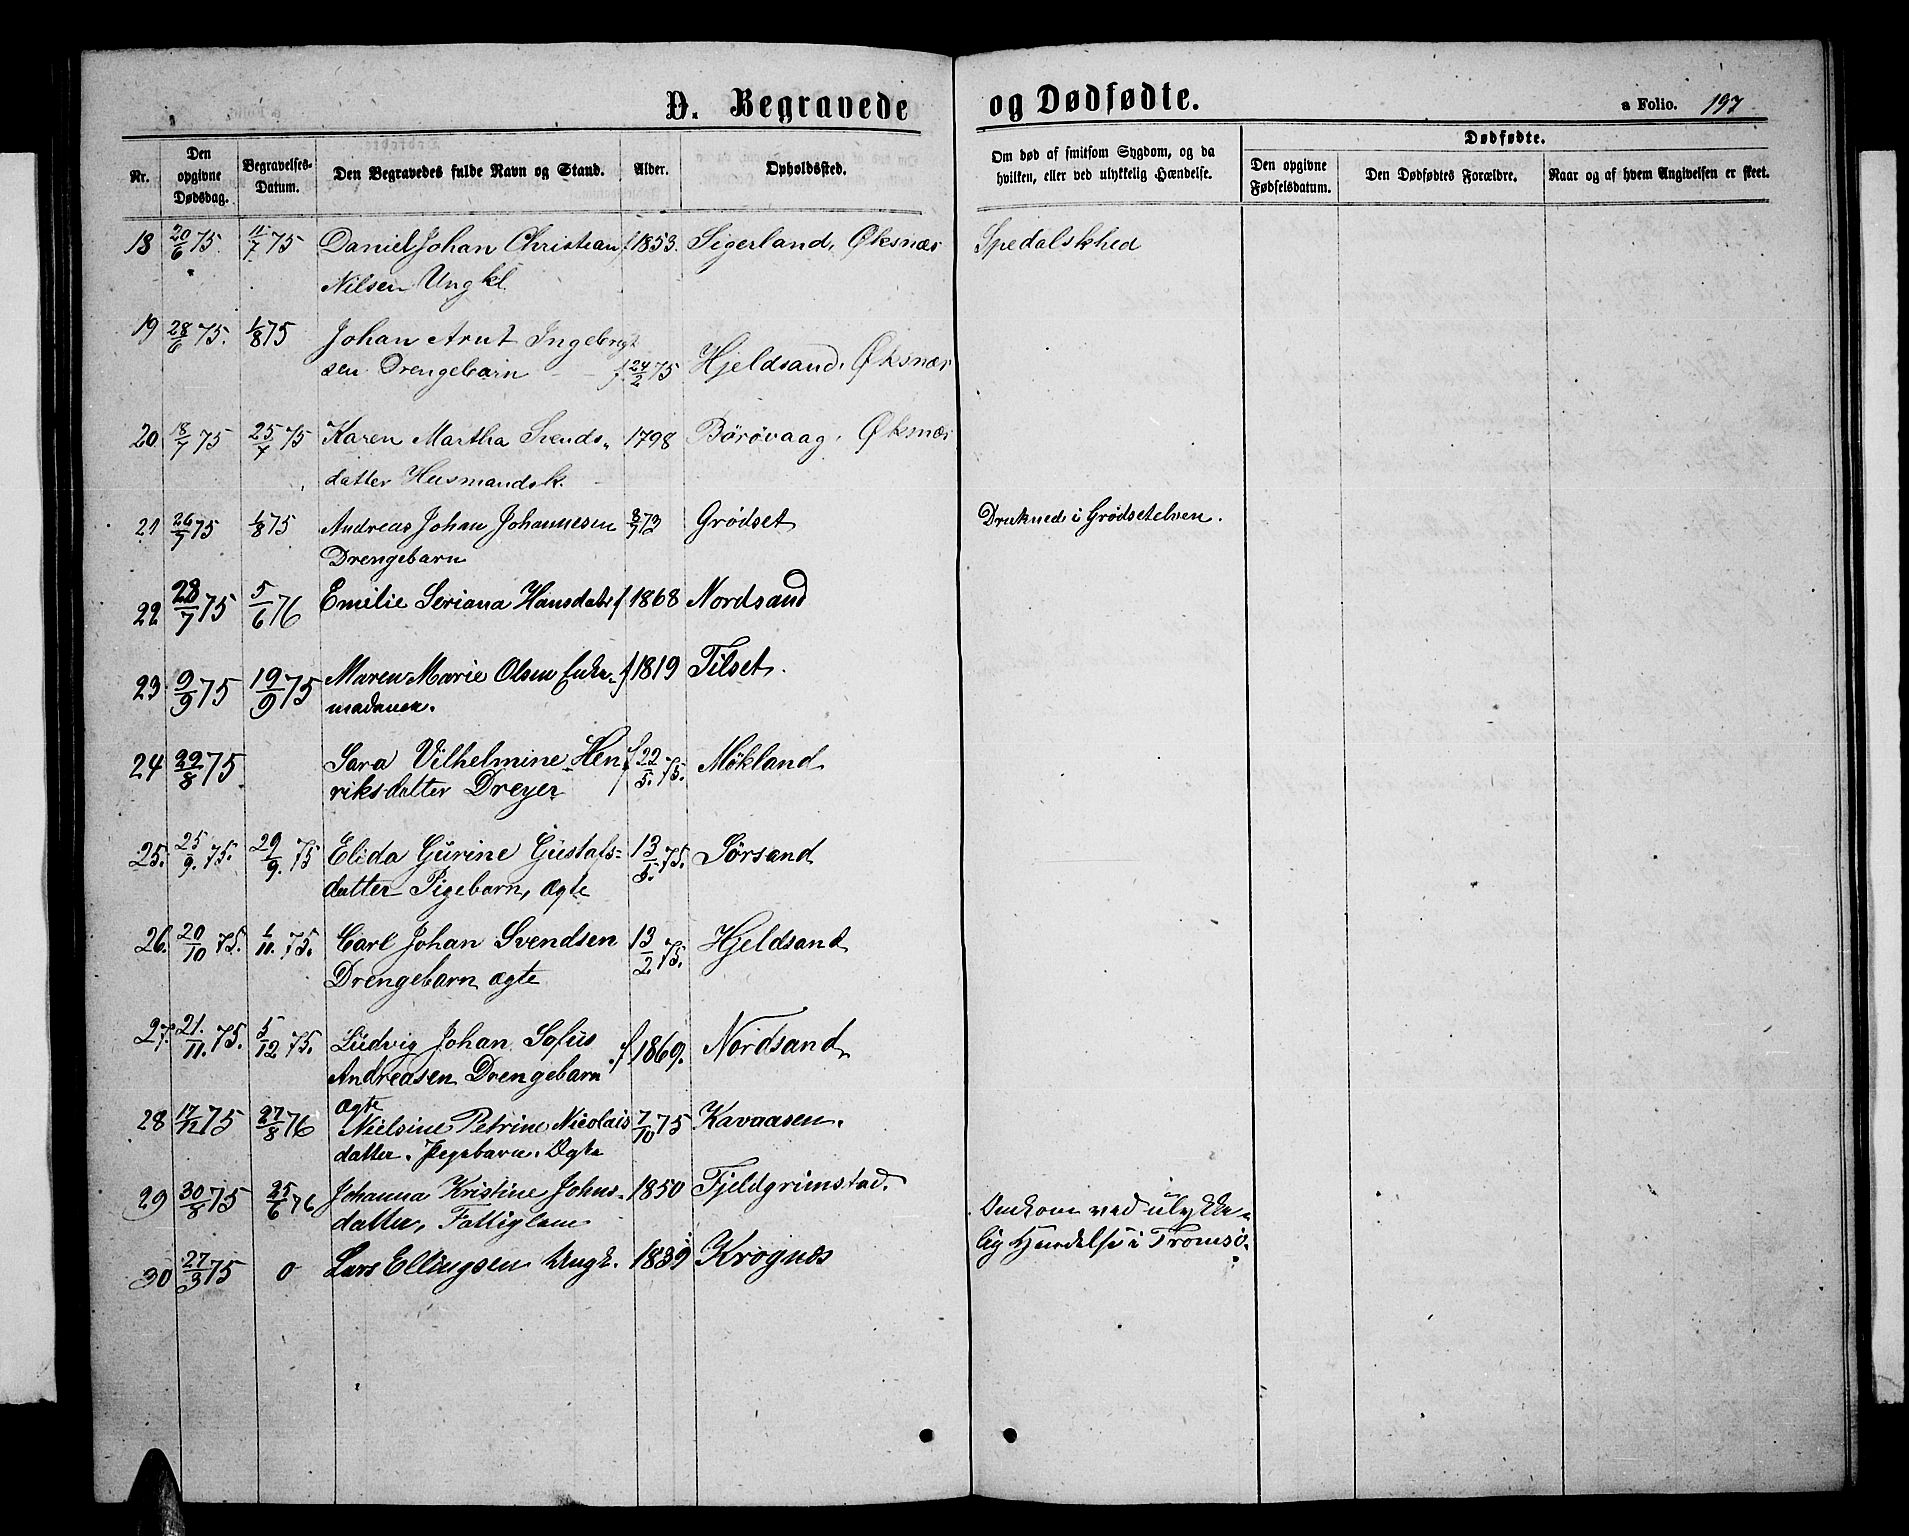 D. Begravede og Dødfødte.
a Folio. 197
Nr. Den opgivne Dødsdag. Begravelses-Datum. Den Begravedes fulde Navn og Stand. Alder. Opholdssted. Om død af smitsom Sygdom, og da hvilken, eller ved ulykkelig Hændelse. Dødfødte. Den opgivne Fødselsdatum. Den Dødfødtes Forældre. Naar og af hvem Angivelsen er skeet.
18 20/6 75 11/7 75 Daniel Johan Christian f 1853. Sigerland, Øksnæs Spedalskhed
Nilsen Ungkl
19 28/6 75. 1/8 75 Johan Arnt Ingebrigt
sen Drengebarn f. 24/2 75 Hjeldsand, Øksnæs
20 18/7 75 25/7 75 Karen Martha Svends- 1798 Börövaag, Øksnæs
datter Husmandsk.
21 26/7 75 1/8 75 Andreas Johan Johannesen 8/7 73 Grödset Druknede i Grödsetelven.
Drengebarn
22 28/7 75 5/6 76 Emilie Seriana Hansdatr f 1868 Nordsand
23 9/9 75 19/9 75 Maren Marie Olsen Enke- f 1819 Tilset.
madamen.
24 29/8 75 Sara Vilhelmine Hen f 22/5. 75. Møkland
riksdatter Dreyer
25. 25/9. 75. 29/9. 75 Elida Gurine Gustafs= 13/5. 75. Sørsand
datter Pigebarn, ægte
26. 20/10 75. 1/11. 75. Carl Johan Svendsen 13/2 75. Hjeldsand
Drengebarn ægte
27. 21./11. 75. 5/12 75. Ludvig Johan Sofus
Andreasen Drengebarn f 1869. Nordsand
ægte
28 17/12 75 27/8 76 Nielsine Petrine Nicolais 7/10 75 Kavaasen.
datter. Pigebarn. Ægte
29 30/8 75 25/6 76 Johanna Kristine Johns- 1850 Fjeldgrimstad.
datter, Fattiglem
30 27/3 75 0 Lars Ellingsen Ungk. 1839 Krognæs Omkom ved ulykke-
lig Hændelse i Tromsö.